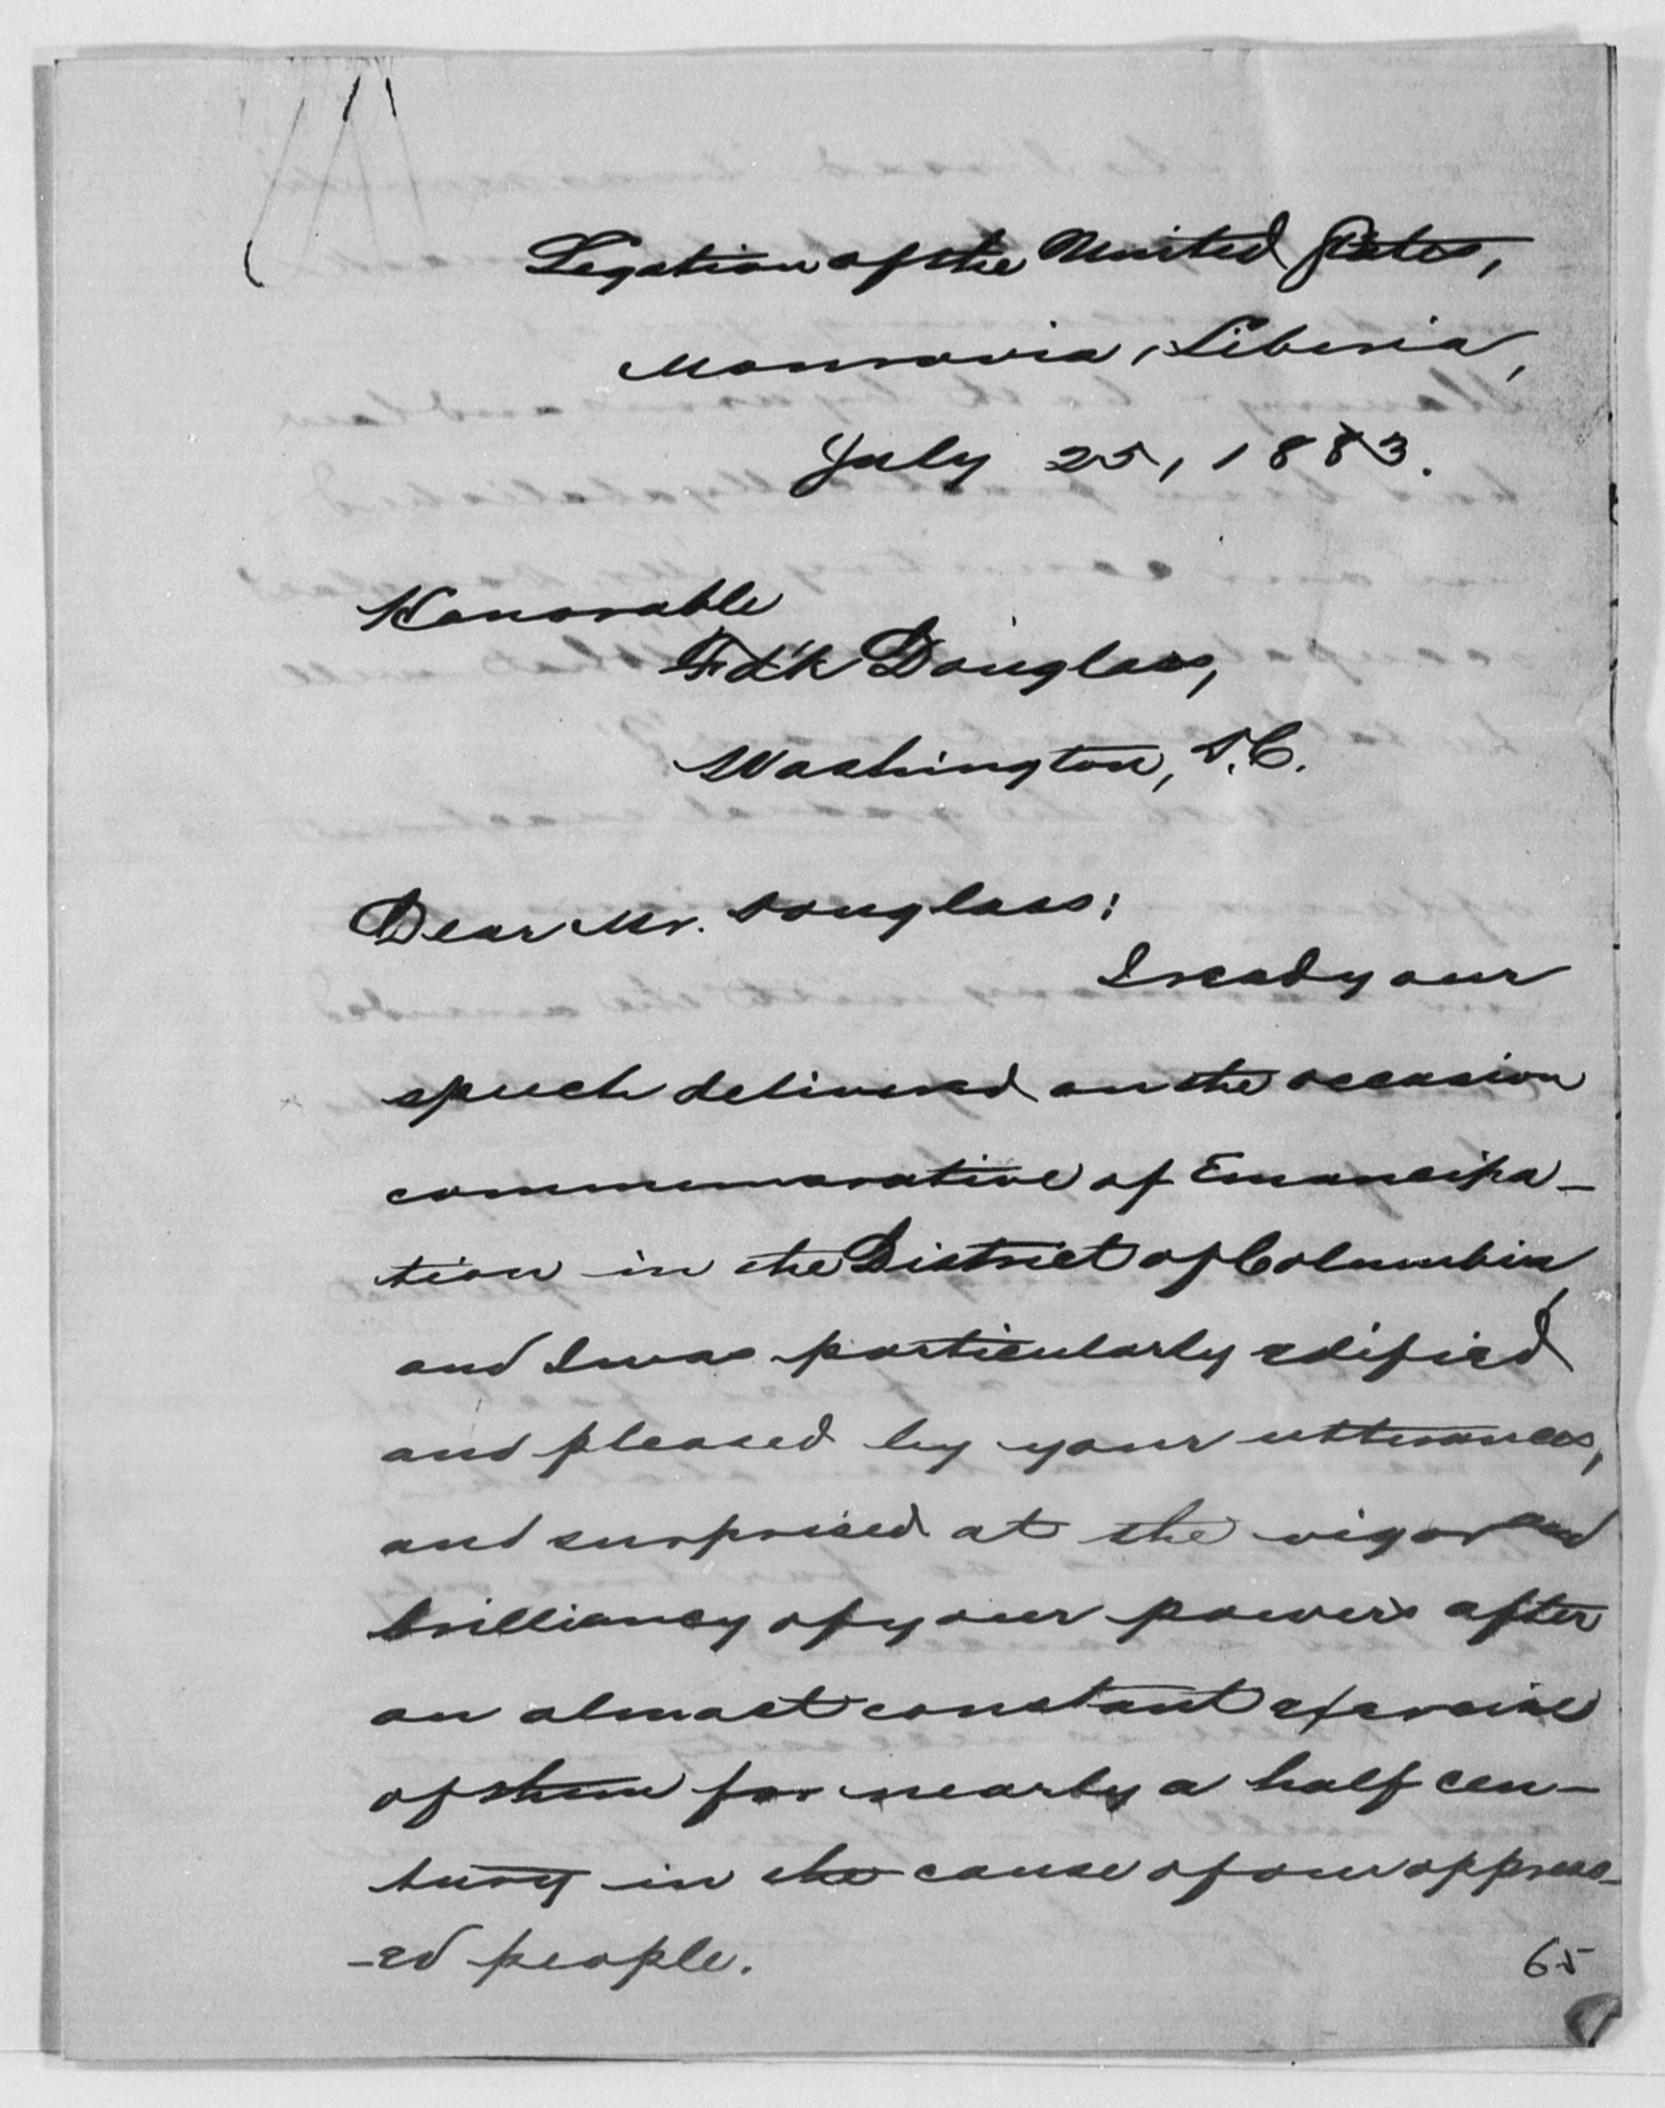 Legation of the United States,
Monrovia, Liberia,
July 25, 1883.
Honorable
Fd'k Douglass,
Washington, D.C.
Dear Mr. Douglass:
I read your
speech delivered on the occasion
commemorative of Emancipa-
tion in the District of Columbia,
and I was particularly edified
and pleased by your utterances,
and surprised at the vigor and
brilliancy of your powers after
an almost constant exercise
of them for nearly a half cen-
tury in the cause of our oppress-
-ed people.
65